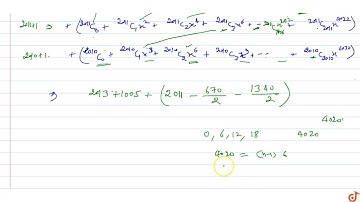 2011+1 ⇒ + (²⁰¹¹C₀ + ²⁰¹¹C₁x² + ²⁰¹¹C₂x⁴ + ²⁰¹¹C₃x⁶ + ²⁰¹¹C₂₀₁₁x⁴⁰²²)
2010+1. + (²⁰¹⁰C₀ + ²⁰¹⁰C₁x³ + ²⁰¹⁰C₂x⁶ + ²⁰¹⁰C₃x⁹ + ---- + ²⁰¹⁰C₂₀₁₀x⁶⁰³⁰)
⇒ 2¹³+1005 + (2011 - 670/2 - 1340/2)
4020
0, 6, 12, 18 4020
4020 = (n-1) 6